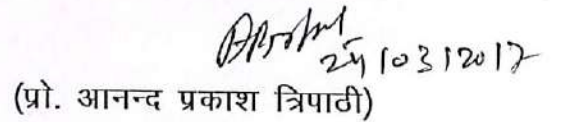 24/03/2017
(प्रो. आनन्द प्रकाश त्रिपाठी)